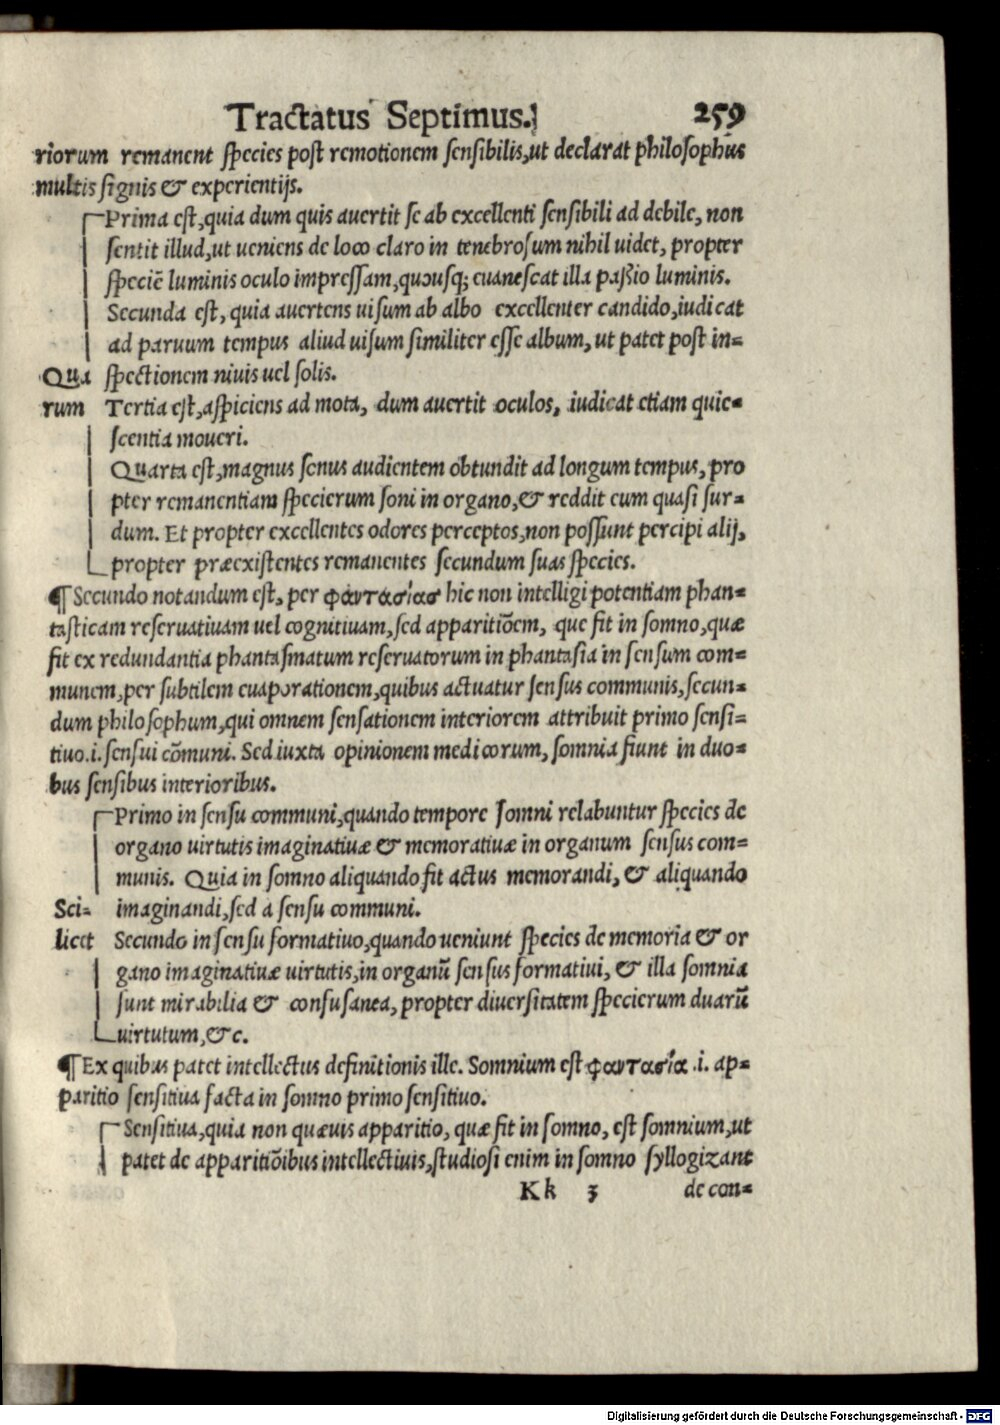 Tractatus Septimus. 259
riorum remanent species post remotionem sensibilis,ut declarat philosophus
multis signis & experientijs.
Prima est,quia dum quis auertit se ab excellenti sensibili ad debile, non
sentit illud,ut ueniens de loco claro in tenebrosum nihil uidet, propter
speciē luminis oculo impressam,quousq; euanescat illa passio luminis.
Secunda est, quia auertens uisum ab albo excellenter candido,iudicat
ad paruum tempus aliud uisum similiter esse album, ut patet post in=
Qua spectionem niuis uel solis.
rum Tertia est,aspiciens ad mota, dum auertit oculos, iudicat etiam quie=
scentia moueri.
Quarta est,magnus sonus audientem obtundit ad longum tempus, pro
pter remanentiam specierum soni in organo,& reddit eum quasi sur=
dum. Et propter excellentes odores perceptos,non possunt percipi alij,
propter præexistentes remanentes secundum suas species.
¶ Secundo notandum est, per φαντασίας hic non intelligi potentiam phan=
tasticam reseruatiuam uel cognitiuam,sed apparitiōem, que fit in somno,quæ
fit ex redundantia phantasmatum reseruatorum in phantasia in sensum com=
munem,per subtilem euaporationem,quibus actuatur sensus communis,secun=
dum philosophum,qui omnem sensationem interiorem attribuit primo sensi=
tiuo.i.sensui cōmuni. Sed iuxta opinionem medicorum, somnia fiunt in duo=
bus sensibus interioribus.
Primo in sensu communi,quando tempore somni relabuntur species de
organo uirtutis imaginatiuæ & memoratiuæ in organum sensus com=
munis. Quia in somno aliquando fit actus memorandi, & aliquando
Sci= imaginandi,sed a sensu communi.
licet Secundo in sensu formatiuo,quando ueniunt species de memoria & or
gano imaginatiuæ uirtutis,in organū sensus formatiui, & illa somnia
sunt mirabilia & confusanea, propter diuersitatem specierum duarū
uirtutum,&c.
¶ Ex quibus patet intellectus definitionis ille. Somnium est φαντασία .i. ap=
paritio sensitiua facta in somno primo sensitiuo.
Sensitiua,quia non quæuis apparitio, quæ fit in somno, est somnium,ut
patet de apparitiōibus intellectiuis,studiosi enim in somno syllogizant
Kk 3 de con=
Digitalisierung gefördert durch die Deutsche Forschungsgemeinschaft - DFG